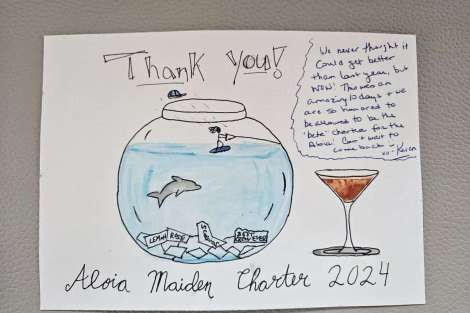 Thank You!
We never thought it
could get better
than last year, but
WOW! This was an
amazing 10 days & we
are so honored to
be allowed to be the
'beta' charter for the
Aloia! Can't wait to
come back ~
xo - Karen
LEMON
ROSE
BEST
Aloia Maiden Charter 2024